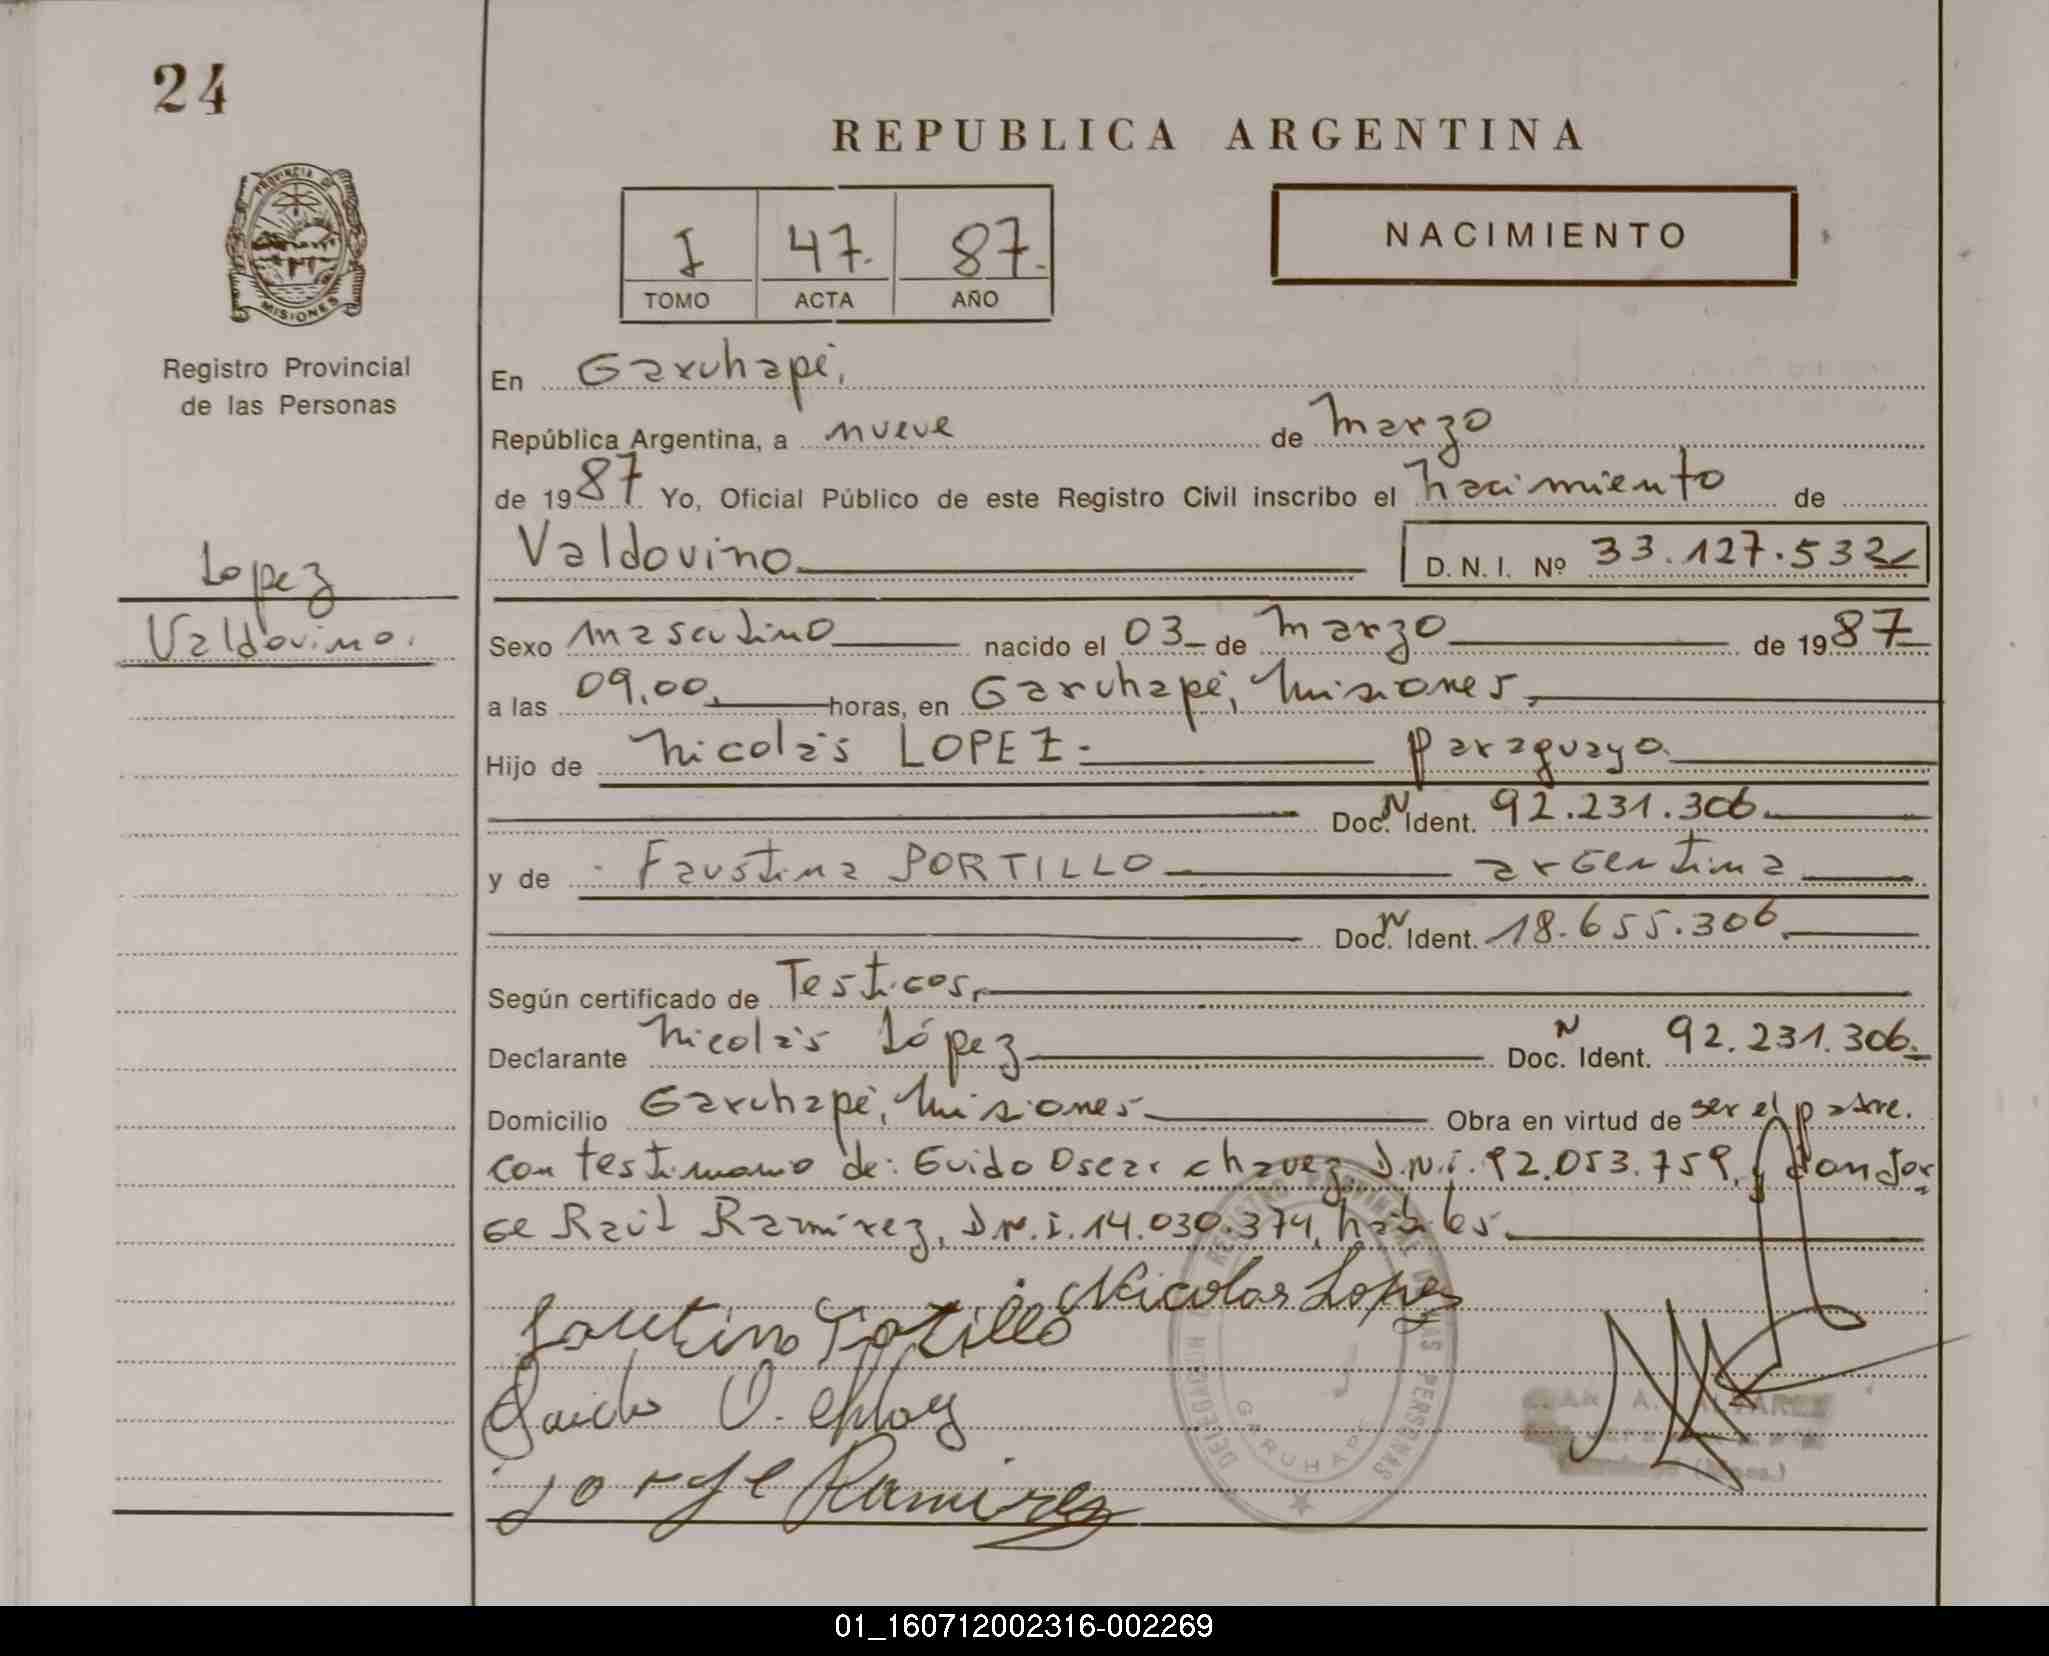 24
REPUBLICA ARGENTINA
PROVINCIA DE
MISIONES
I 47. 87.
TOMO ACTA AÑO
NACIMIENTO
Registro Provincial
de las Personas
En Garuhapé,
República Argentina, a nueve de Marzo
de 1987 Yo, Oficial Público de este Registro Civil inscribo el nacimiento de
Valdovino D. N. I. Nº 33.127.532
Lopez
Valdovino.
Sexo masculino nacido el 03 de Marzo de 1987
a las 09,00, horas, en Garuhapé, Misiones,
Hijo de Nicolás LOPEZ- paraguayo
Doc. N Ident. 92.231.306
y de Faustina PORTILLO argentina
Doc. N Ident. 18.655.306
Según certificado de Testigos,
Declarante Nicolás López Doc. N Ident. 92.231.306.
Domicilio Garuhapé, Misiones Obra en virtud de ser el padre.
con testimonio de: Guido Oscar chavez D.N.I. 92.053.759, y don Jor
ge Raúl Ramírez, D.N.I. 14.030.374, hábiles.
Nicolas Lopez
Jorge Ramirez
REGISTRO PROVINCIAL DE LAS PERSONAS
DELEGACION
GARUHAPE
01_160712002316-002269